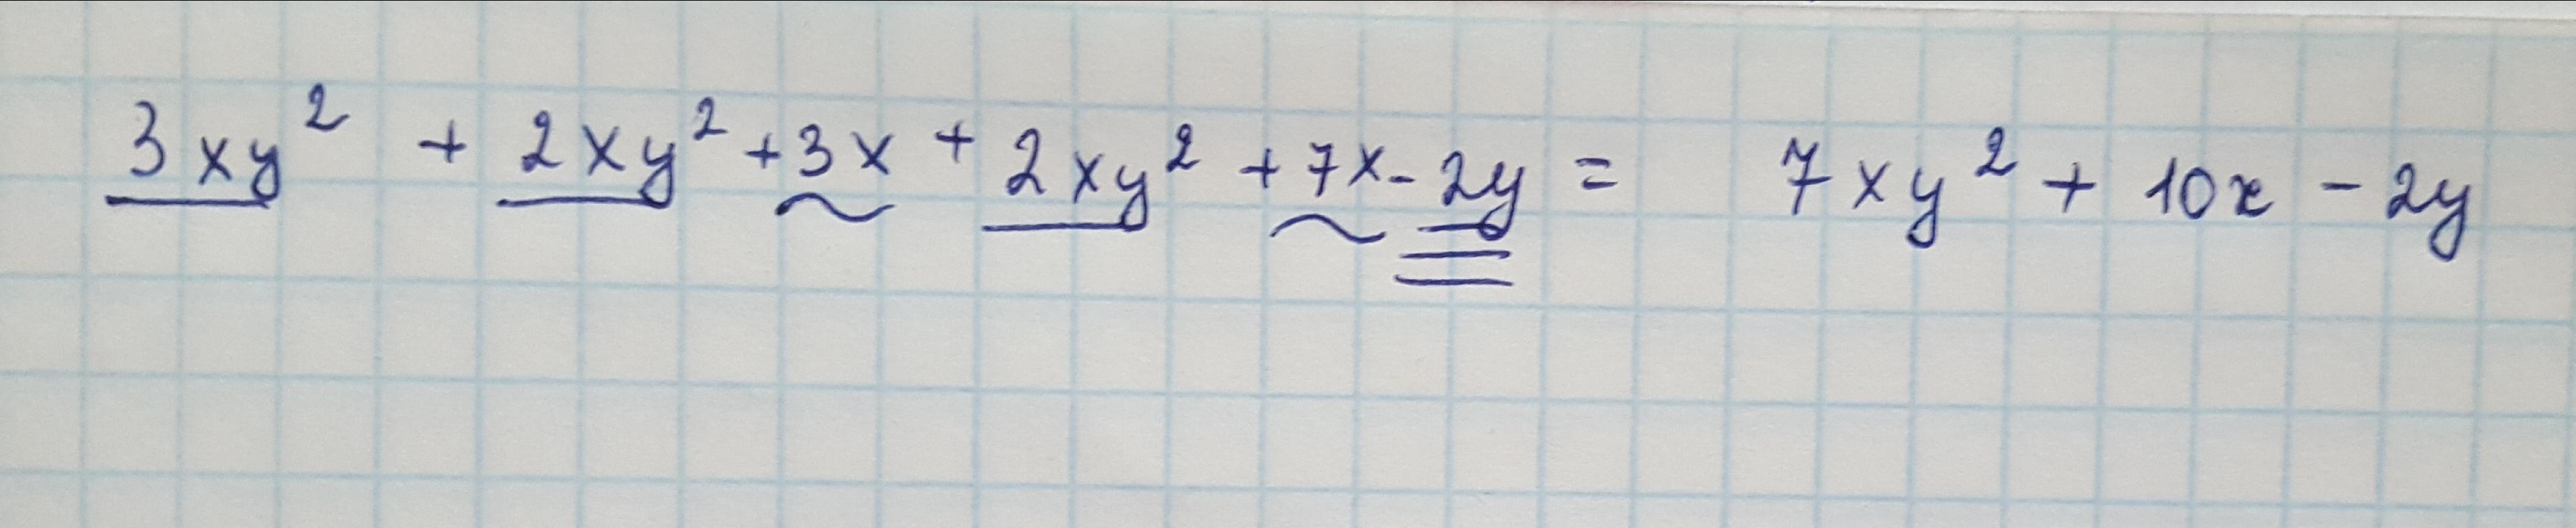 3xy² + 2xy² + 3x + 2xy² + 7x - 2y = 7xy² + 10x - 2y